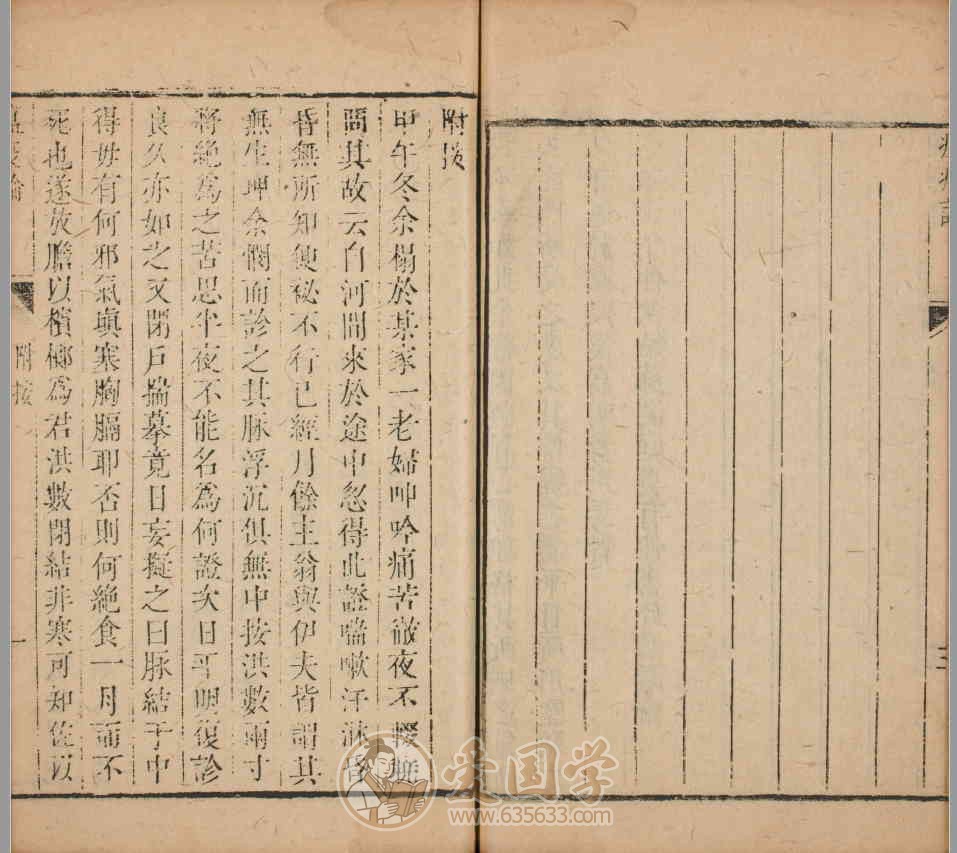 附按
甲午冬余榻於某家一老婦呻吟痛苦徹夜不輟
問其故云自河間來於途中忽得此證喘嗽汗淋昏
昏無所知便祕不行已經月餘主翁與伊夫皆謂其
無生理余憫而診之其脉浮沉俱無中按洪數兩寸
將絶為之苦思半夜不能名為何證次日平明復診
良久亦如之又閉戶揣摹竟日妄擬之曰脉結于中
得毋有何邪氣填塞胸膈耶否則何絶食一月而不
死也遂放膽以檳榔為君洪數閉結非寒可知佐以
附按
一
三
爱国学
www.635633.com